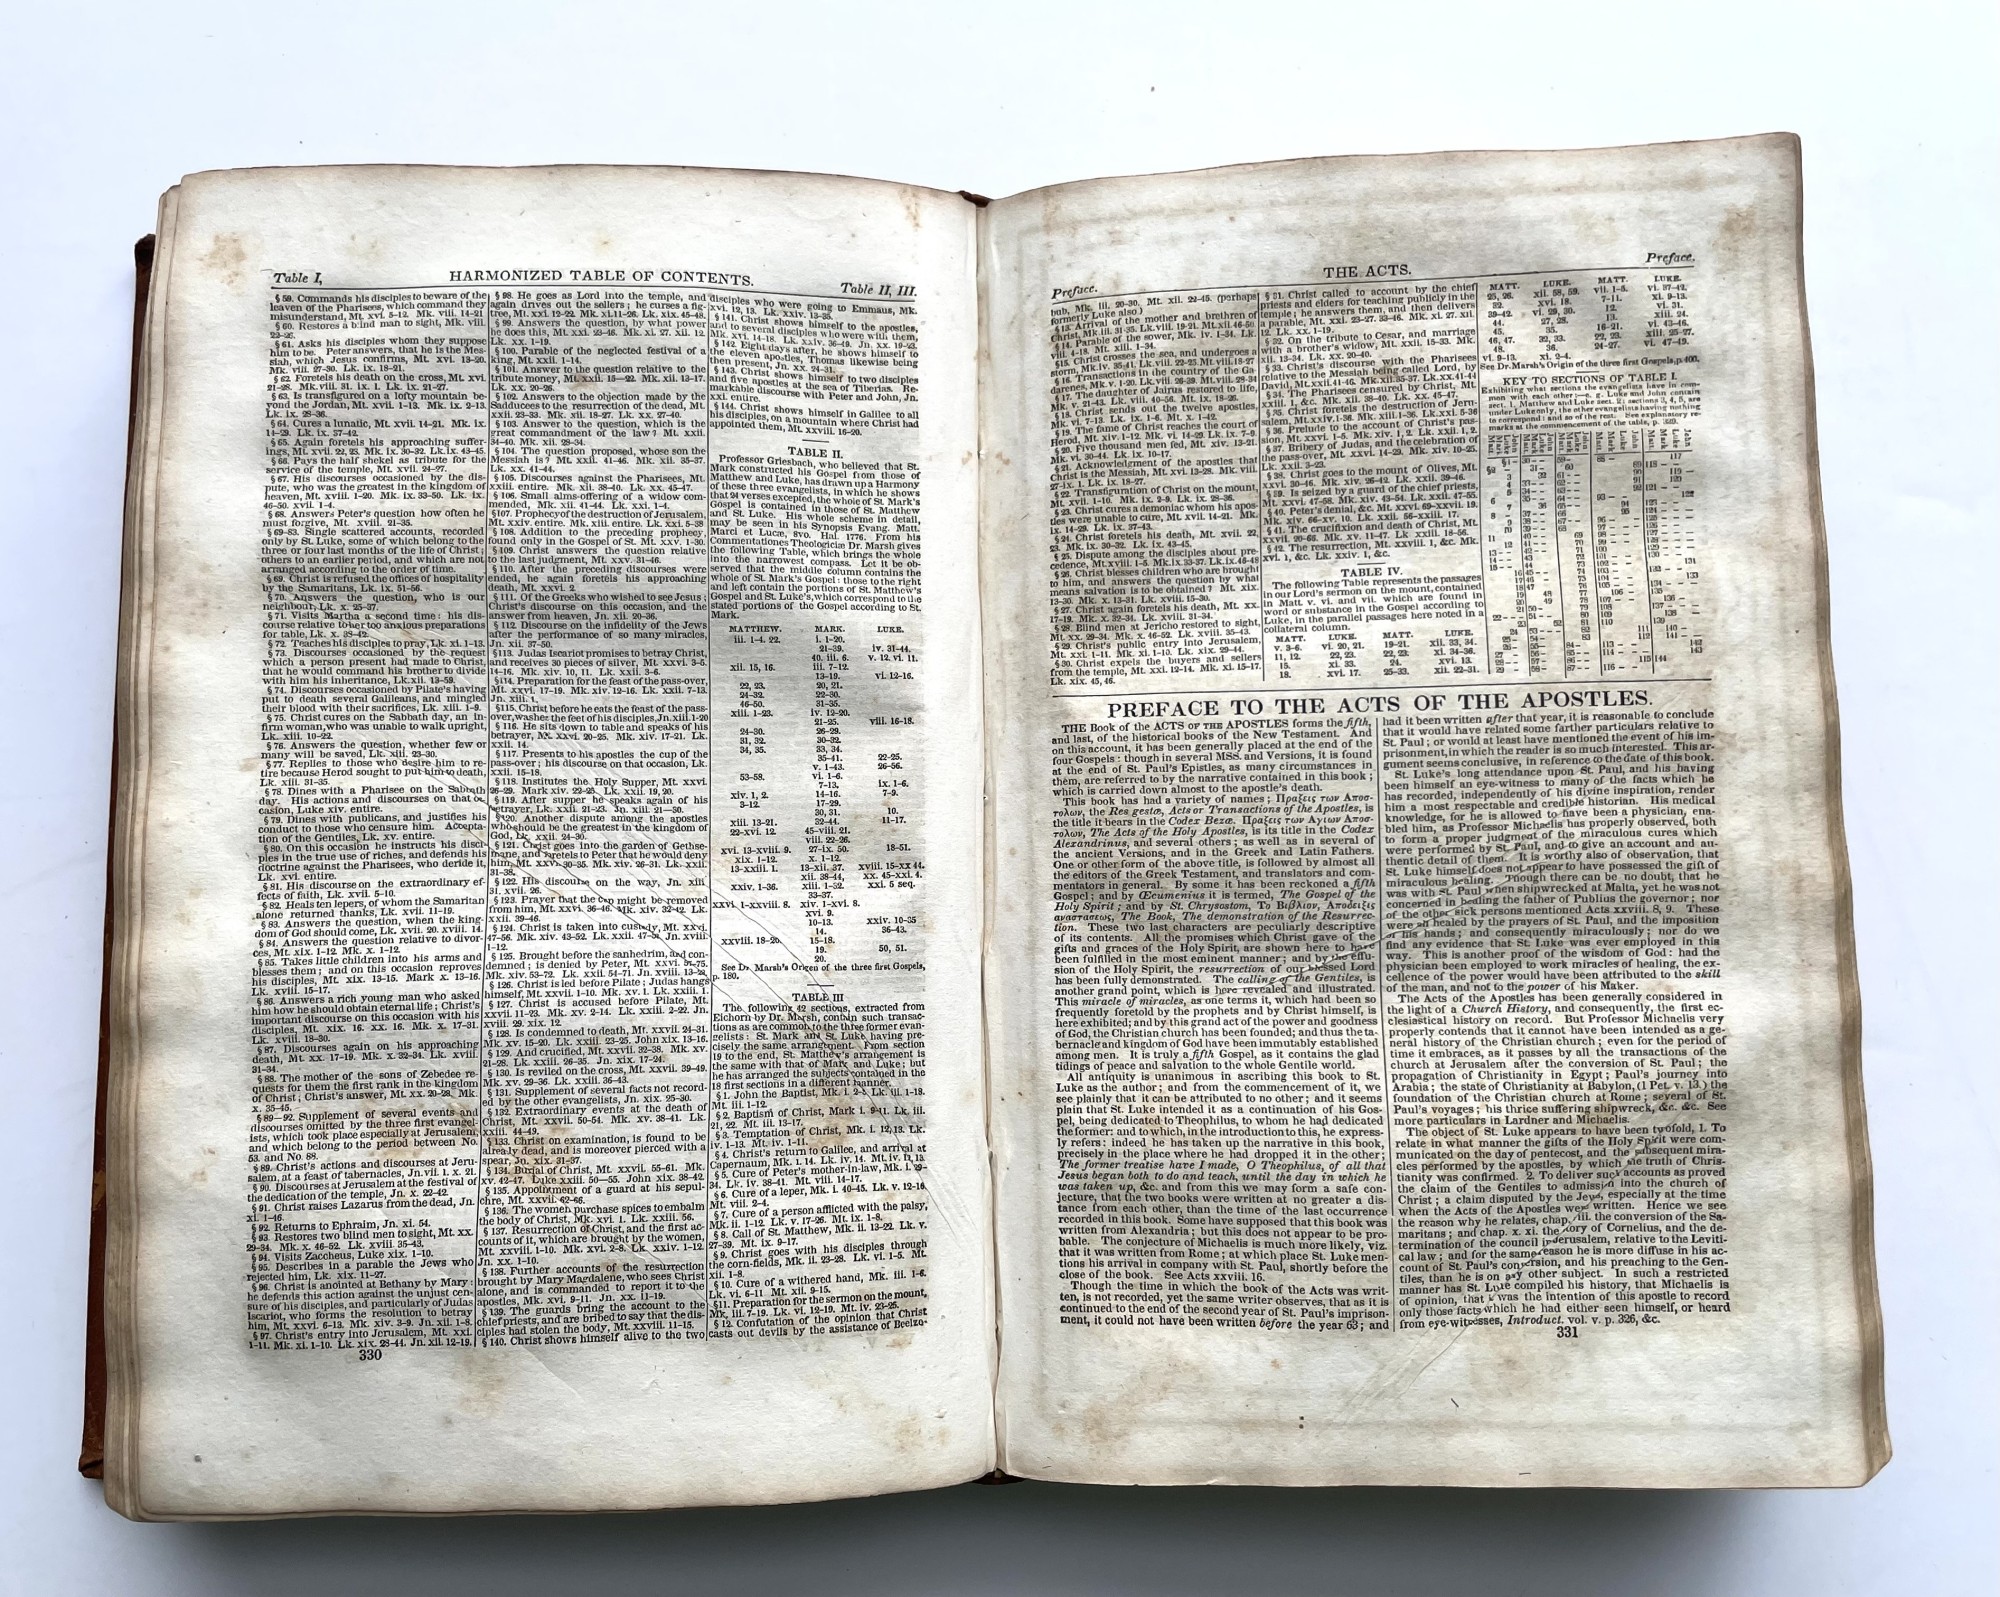 Table I,
HARMONIZED TABLE OF CONTENTS.
Table II, III.
§ 59. Commands his disciples to beware of the
leaven of the Pharisees, which command they
misunderstand, Mt. xvi. 5-12. Mk. viii. 14-21
§ 60. Restores a blind man to sight, Mk. viii.
22-26.
§ 61. Asks his disciples whom they suppose
him to be. Peter answers, that he is the Mes-
siah, which Jesus confirms, Mt. xvi. 13-20.
Mk. viii. 27-30. Lk. ix. 18-21.
§ 62. Foretels his death on the cross, Mt. xvi.
21-28. Mk. viii. 31. ix. 1. Lk. ix. 21-27.
§ 63. Is transfigured on a lofty mountain be-
yond the Jordan, Mt. xvii. 1-13. Mk. ix. 2-13.
Lk. ix. 28-36.
§ 64. Cures a lunatic, Mt. xvii. 14-21. Mk. ix.
14-29. Lk. ix. 37-42.
§ 65. Again foretels his approaching suffer-
ings, Mt. xvii. 22, 23. Mk. ix. 30-32. Lk. ix. 43-45.
§ 66. Pays the half shekel as tribute for the
service of the temple, Mt. xvii. 24-27.
§ 67. His discourses occasioned by the dis-
pute, who was the greatest in the kingdom of
heaven, Mt. xviii. 1-20. Mk. ix. 33-50. Lk. ix.
46-50. xvii. 1-4.
§ 68. Answers Peter's question how often he
must forgive, Mt. xviii. 21-35.
§ 69-83. Single scattered accounts, recorded
only by St. Luke, some of which belong to the
three or four last months of the life of Christ;
others to an earlier period, and which are not
arranged according to the order of time.
§ 69. Christ is refused the offices of hospitality
by the Samaritans, Lk. ix. 51-56.
§ 70. Answers the question, who is our
neighbour, Lk. x. 25-37.
§ 71. Visits Martha a second time: his dis-
course relative to her too anxious preparations
for table, Lk. x. 38-42.
§ 72. Teaches his disciples to pray, Lk. xi. 1-13.
§ 73. Discourses occasioned by the request
which a person present had made to Christ,
that he would command his brother to divide
with him his inheritance, Lk. xii. 13-59.
§ 74. Discourses occasioned by Pilate's having
put to death several Galileans, and mingled
their blood with their sacrifices, Lk. xiii. 1-9.
§ 75. Christ cures on the Sabbath day, an in-
firm woman, who was unable to walk upright,
Lk. xiii. 10-22.
§ 76. Answers the question, whether few or
many will be saved, Lk. xiii. 23-30.
§ 77. Replies to those who desire him to re-
tire because Herod sought to put him to death,
Lk. xiii. 31-35.
§ 78. Dines with a Pharisee on the Sabbath
day. His actions and discourses on that oc-
casion, Luke xiv. entire.
§ 79. Dines with publicans, and justifies his
conduct to those who ensure him. Accepta-
tion of the Gentiles, Lk. xv. entire.
§ 80. On this occasion he instructs his disci-
ples in the true use of riches, and defends his
doctrine against the Pharisees, who deride it,
Lk. xvi. entire.
§ 81. His discourse on the extraordinary ef-
fects of faith, Lk. xvii. 5-10.
§ 82. Heals ten lepers, of whom the Samaritan
alone returned thanks, Lk. xvii. 11-19.
§ 83. Answers the question, when the king-
dom of God should come, Lk. xvii. 20. xviii. 14.
§ 84. Answers the question relative to divor-
ces, Mt. xix. 1-12. Mk. x. 1-12.
§ 85. Takes little children into his arms and
blesses them; and on this occasion reproves
his disciples, Mt. xix. 13-15. Mark x. 13-16.
Lk. xviii. 15-17.
§ 86. Answers a rich young man who asked
him how he should obtain eternal life; Christ's
important discourse on this occasion with his
disciples, Mt. xix. 16. xx. 16. Mk. x. 17-31.
Lk. xviii. 18-30.
§ 87. Discourses again on his approaching
death, Mt. xx. 17-19. Mk. x. 32-34. Lk. xviii.
31-34.
§ 88. The mother of the sons of Zebedee re-
quests for them the first rank in the kingdom
of Christ; Christ's answer, Mt. xx. 20-28. Mk.
x. 35-45.
§ 89—92. Supplement of several events and
discourses omitted by the three first evangel-
ists, which took place especially at Jerusalem,
and which belong to the period between No.
53. and No. 88.
§ 89. Christ's actions and discourses at Jeru-
salem, at a feast of tabernacles, Jn. vii. 1. x. 21.
§ 90. Discourses at Jerusalem at the festival of
the dedication of the temple, Jn. x. 22-42.
§ 91. Christ raises Lazarus from the dead, Jn.
xi. 1-46.
§ 92. Returns to Ephraim, Jn. xi. 54.
§ 93. Restores two blind men to sight, Mt. xx.
29-34. Mk. x. 46-52. Lk. xviii. 35-43.
§ 94. Visits Zaccheus, Luke xix. 1-10.
§ 95. Describes in a parable the Jews who
rejected him, Lk. xix. 11-27.
§ 96. Christ is anointed at Bethany by Mary:
he defends this action against the unjust cen-
sure of his disciples, and particularly of Judas
Iscariot, who forms the resolution to betray
him, Mt. xxvi. 6-13. Mk. xiv. 3-9. Jn. xii. 1-8.
§ 97. Christ's entry into Jerusalem, Mt. xxi.
1-11. Mk. xi. 1-10. Lk. xix. 28-44. Jn. xii. 12-19.
§ 98. He goes as Lord into the temple, and
again drives out the sellers; he curses a fig-
tree, Mt. xxi. 12-22. Mk. xi. 11-26. Lk. xix. 45-48.
§ 99. Answers the question, by what power
he does this, Mt. xxi. 23-46. Mk. xi. 27. xii. 12.
Lk. xx. 1-19.
§ 100. Parable of the neglected festival of a
king, Mt. xxii. 1-14.
§ 101. Answer to the question relative to the
tribute money, Mt. xxii. 15-22. Mk. xii. 13-17.
Lk. xx. 20-26.
§ 102. Answers to the objection made by the
Sadducees to the resurrection of the dead, Mt.
xxii. 23-33. Mk. xii. 18-27. Lk. xx. 27-40.
§ 103. Answer to the question, which is the
great commandment of the law? Mt. xxii.
34-40. Mk. xii. 28-34.
§ 104. The question proposed, whose son the
Messiah is? Mt. xxii. 41-46. Mk. xii. 35-37.
Lk. xx. 41-44.
§ 105. Discourses against the Pharisees, Mt.
xxiii. entire. Mk. xii. 38-40. Lk. xx. 45-47.
§ 106. Small alms-offering of a widow com-
mended, Mk. xii. 41-44. Lk. xxi. 1-4.
§ 107. Prophecy of the destruction of Jerusalem,
Mt. xxiv. entire. Mk. xiii. entire. Lk. xxi. 5-38
§ 108. Addition to the preceding prophecy,
found only in the Gospel of St. Mt. xxv. 1-30.
§ 109. Christ answers the question relative
to the last judgment, Mt. xxv. 31-46.
§ 110. After the preceding discourses were
ended, he again foretels his approaching
death, Mt. xxvi. 2.
§ 111. Of the Greeks who wished to see Jesus;
Christ's discourse on this occasion, and the
answer from heaven, Jn. xii. 20-36.
§ 112. Discourse on the infidelity of the Jews
after the performance of so many miracles,
Jn. xii. 37-50.
§ 113. Judas Iscariot promises to betray Christ,
and receives 30 pieces of silver, Mt. xxvi. 3-5.
14-16. Mk. xiv. 10, 11. Lk. xxii. 3-6.
§ 114. Preparation for the feast of the pass-over,
Mt. xxvi. 17-19. Mk. xiv. 12-16. Lk. xxii. 7-13.
Jn. xiii. 1.
§ 115. Christ before he eats the feast of the pass-
over, washes the feet of his disciples, Jn. xiii. 1-20
§ 116. He sits down to table and speaks of his
betrayer, Mt. xxvi. 20-25. Mk. xiv. 17-21. Lk.
xxii. 14.
§ 117. Presents to his apostles the cup of the
pass-over; his discourse on that occasion, Lk.
xxii. 15-18.
§ 118. Institutes the Holy Supper, Mt. xxvi.
26-29. Mark xiv. 22-25. Lk. xxii. 19, 20.
§ 119. After supper he speaks again of his
betrayer, Lk. xxii. 21-23. Jn. xiii. 21-30.
§ 120. Another dispute among the apostles
who should be the greatest in the kingdom of
God, Lk. xxii. 24-30.
§ 121. Christ goes into the garden of Gethse-
mane, and foretels to Peter that he would deny
him, Mt. xxvi. 30-35. Mk. xiv. 26-31. Lk. xxii.
31-38.
§ 122. His discourse on the way, Jn. xiii.
31. xvii. 26.
§ 123. Prayer that the cup might be removed
from him, Mt. xxvi. 36-46. Mk. xiv. 32-42. Lk.
xxii. 39-46.
§ 124. Christ is taken into custody, Mt. xxvi.
47-56. Mk. xiv. 43-52. Lk. xxii. 47-53. Jn. xviii.
1-12.
§ 125. Brought before the sanhedrim, and con-
demned; is denied by Peter, Mt. xxvi. 57-75.
Mk. xiv. 53-72. Lk. xxii. 54-71. Jn. xviii. 13-
§ 126. Christ is led before Pilate; Judas hangs
himself, Mt. xxvii. 1-10. Mk. xv. 1. Lk. xxiii. 1.
§ 127. Christ is accused before Pilate, Mt.
xxvii. 11-23. Mk. xv. 2-14. Lk. xxiii. 2-22. Jn.
xviii. 29. xix. 12.
§ 128. Is condemned to death, Mt. xxvii. 24-31.
Mk. xv. 15-20. Lk. xxiii. 23-25. John xix. 13-16.
§ 129. And crucified, Mt. xxvii. 32-38. Mk. xv.
21-28. Lk. xxiii. 26-35. Jn. xix. 17-24.
§ 130. Is reviled on the cross, Mt. xxvii. 39-49.
Mk. xv. 29-36. Lk. xxiii. 36-43.
§ 131. Supplement of several facts not record-
ed by the other evangelists, Jn. xix. 25-30.
§ 132. Extraordinary events at the death of
Christ, Mt. xxvii. 50-54. Mk. xv. 38-41. Lk.
xxiii. 44-49.
§ 133. Christ on examination, is found to be
already dead, and is moreover pierced with a
spear, Jn. xix. 31-37.
§ 134. Burial of Christ, Mt. xxvii. 55-61. Mk.
xv. 42-47. Luke xxiii. 50—55. John xix. 38-42
§ 135. Appointment of a guard at his sepul-
chre, Mt. xxvii. 62-66.
§ 136. The women purchase spices to embalm
the body of Christ, Mk. xvi. 1. Lk. xxiii. 56.
§ 137. Resurrection of Christ, and the first ac-
counts of it, which are brought by the women,
Mt. xxviii. 1-10. Mk. xvi. 2-8. Lk. xxiv. 1-12.
Jn. xx. 1-10.
§ 138. Further accounts of the resurrection
brought by Mary Magdalene, who sees Christ
alone, and is commanded to report it to the
apostles, Mk. xvi. 9-11. Jn. xx. 11-19.
§ 139. The guards bring the account to the
chief priests, and are bribed to say that the dis-
ciples had stolen the body, Mt. xxviii. 11-15.
§ 140. Christ shows himself alive to the two
disciples who were going to Emmaus, Mk.
xvi. 12, 13. Lk. xxiv. 13-35.
§ 141. Christ shows himself to the apostles,
and to several disciples who were with them,
Mk. xvi. 14-18. Lk. xxiv. 36-49. Jn. xx. 19-23.
§ 142. Eight days after, he shows himself to
the eleven apostles, Thomas likewise being
then present, Jn. xx. 24-31.
§ 143. Christ shows himself to two disciples
and five apostles at the sea of Tiberias. Re-
markable discourse with Peter and John, Jn.
xxi. entire.
§ 144. Christ shows himself in Galilee to all
his disciples, on a mountain where Christ had
appointed them, Mt. xxviii. 16-20.
TABLE II.
Professor Griesbach, who believed that St.
Mark constructed his Gospel from those of
Matthew and Luke, has drawn up a Harmony
of these three evangelists, in which he shows
that 24 verses excepted, the whole of St. Mark's
Gospel is contained in those of St. Matthew
and St. Luke. His whole scheme in detail,
may be seen in his Synopsis Evang. Matt.
Marci et Lucæ, 8vo. Hal. 1776. From his
Commentationes Theologicæ Dr. Marsh gives
the following Table, which brings the whole
into the narrowest compass. Let it be ob-
served that the middle column contains the
whole of St. Mark's Gospel: those to the right
and left contain the portions of St. Matthew's
Gospel and St. Luke's, which correspond to the
stated portions of the Gospel according to St.
Mark.
MATTHEW. MARK. LUKE.
iii. 1-4. 22. i. 1-20.
21-39. iv. 31-44.
40. iii. 6. v. 12. vi. 11.
xii. 15, 16. iii. 7-12.
13-19. vi. 12-16.
22, 23. 20, 21.
24-32. 22-30.
46-50. 31-35.
xiii. 1-23. iv. 12-20.
21-25. viii. 16-18.
24-30. 26-29.
31, 32. 30-32.
34, 35. 33, 34.
35-41. 22-25.
v. 1-43. 26-56.
53-58. vi. 1-6.
7-13. ix. 1-6.
xiv. 1, 2. 14-16. 7-9.
3-12. 17-29.
30, 31. 10.
xiii. 13-21. 32-44. 11-17.
22-xvi. 12. 45-viii. 21.
viii. 22-26.
xvi. 13-xviii. 9. 27-ix. 50. 18-51.
xix. 1-12. x. 1-12.
13-xxiii. 1. 13-xii. 37. xviii. 15-xx 44.
xii. 38-44, xx. 45-xxi. 4.
xxiv. 1-36. xiii. 1-32. xxi. 5 seq.
33-37.
xxvi. 1-xxviii. 8. xiv. 1-xvi. 8.
xvi. 9.
10-13. xxiv. 10-35
14. 36-43.
xxviii. 18-20. 15-18.
19. 50, 51.
20.
See Dr Marsh's Origen of the three first Gospels,
p. 180.
TABLE III
The following 42 sections, extracted from
Eichorn by Dr. Marsh, contain such transac-
tions as are common to the three former evan-
gelists: St. Mark and St. Luke having pre-
cisely the same arrangement. From section
19 to the end, St. Matthew's arrangement is
the same with that of Mark and Luke; but
he has arranged the subjects contained in the
18 first sections in a different manner.
§ 1. John the Baptist, Mk. i. 2-8. Lk. iii. 1-18.
Mt. iii. 1-12.
§ 2. Baptism of Christ, Mark i. 9-11. Lk. iii.
21, 22. Mt. iii. 13-17.
§ 3. Temptation of Christ, Mk. i. 12, 13. Lk.
iv. 1-13. Mt. iv. 1-11.
§ 4. Christ's return to Galilee, and arrival at
Capernaum, Mk. i. 14. Lk. iv. 14. Mt. iv. 12, 13
§ 5. Cure of Peter's mother-in-law, Mk. i. 29-
34. Lk. iv. 38-41. Mt. viii. 14-17.
§ 6. Cure of a leper, Mk. i. 40-45. Lk. v. 12-16.
Mt. viii. 2-4.
§ 7. Cure of a person afflicted with the palsy,
Mk. ii. 1-12. Lk. v. 17-26. Mt. ix. 1-8.
§ 8. Call of St. Matthew, Mk. ii. 13-22. Lk. v.
27-39. Mt. ix. 9-17.
§ 9. Christ goes with his disciples through
the corn-fields, Mk. ii. 23-28. Lk. vi. 1-5. Mt.
xii. 1-8.
§ 10. Cure of a withered hand, Mk. iii. 1-6.
Lk. vi. 6-11 Mt. xii. 9-15.
§ 11. Preparation for the sermon on the mount,
Mk. iii. 7-19. Lk. vi. 12-19. Mt. iv. 23-25.
§ 12. Confutation of the opinion that Christ
casts out devils by the assistance of Beelze-
330
Preface.
THE ACTS.
Preface.
bub, Mk. iii. 20-30. Mt. xii. 22-45. (perhaps
formerly Luke also)
§ 13. Arrival of the mother and brethren of
Christ, Mk. iii. 31-35. Lk. viii. 19-21. Mt. xii. 46-50.
§ 14. Parable of the sower, Mk. iv. 1-34. Lk.
viii. 4-18. Mt. xiii. 1-34.
§ 15. Christ crosses the sea, and undergoes a
storm, Mk. iv. 35-41. Lk. viii. 22-25. Mt. viii. 18-27
§ 16. Transactions in the country of the Ga-
darenes, Mk. v. 1-20. Lk. viii. 26-39. Mt. viii. 28-34
§ 17. The daughter of Jairus restored to life,
Mk. v. 21-43. Lk. viii. 40-56. Mt. ix. 18-26.
§ 18. Christ sends out the twelve apostles,
Mk. vi. 7-13. Lk. ix. 1-6. Mt. x. 1-42.
§ 19. The fame of Christ reaches the court of
Herod, Mt. xiv. 1-12. Mk. vi. 14-29. Lk. ix. 7-9.
§ 20. Five thousand men fed, Mt. xiv. 13-21.
Mk. vi. 30-44. Lk. ix. 10-17.
§ 21. Acknowledgment of the apostles that
Christ is the Messiah, Mt. xvi. 13-28. Mk. viii.
27-ix. 1. Lk. ix. 18-27.
§ 22. Transfiguration of Christ on the mount,
Mt. xvii. 1-10. Mk. ix. 2-9. Lk. ix. 28-36.
§ 23. Christ cures a demoniac whom his apos-
tles were unable to cure, Mt. xvii. 14-21. Mk.
ix. 14-29. Lk. ix. 37-43.
§ 24. Christ foretels his death, Mt. xvii. 22,
23. Mk. ix. 30-32. Lk. ix. 43-45.
§ 25. Dispute among the disciples about pre-
cedence, Mt. xviii. 1-5. Mk. ix. 33-37. Lk. ix. 46-48
§ 26. Christ blesses children who are brought
to him, and answers the question by what
means salvation is to be obtained? Mt. xix.
13-30. Mk. x. 13-31. Lk. xviii. 15-30.
§ 27. Christ again foretels his death, Mt. xx.
17-19. Mk. x. 32-34. Lk. xviii. 31-34.
§ 28. Blind men at Jericho restored to sight,
Mt. xx. 29-34. Mk. x. 46-52. Lk. xviii. 35-43.
§ 29. Christ's public entry into Jerusalem,
Mt. xxi. 1-11. Mk. xi. 1-10. Lk. xix. 29-44.
§ 30. Christ expels the buyers and sellers
from the temple, Mt. xxi. 12-14. Mk. xi. 15-17.
Lk. xix. 45, 46.
§ 31. Christ called to account by the chief
priests and elders for teaching publicly in the
temple; he answers them, and then delivers
a parable, Mt. xxi. 23-27. 33-46. Mk. xi. 27. xii.
12. Lk. xx. 1-19.
§ 32. On the tribute to Cesar, and marriage
with a brother's widow, Mt. xxii. 15-33. Mk.
xii. 13-34. Lk. xx. 20-40.
§ 33. Christ's discourse with the Pharisees
relative to the Messiah being called Lord, by
David, Mt. xxii. 41-46. Mk. xii. 35-37. Lk. xx. 41-44
§ 34. The Pharisees censured by Christ, Mt.
xxiii. 1, &c. Mk. xii. 38-40. Lk. xx. 45-47.
§ 35. Christ foretels the destruction of Jeru-
salem, Mt. xxiv. 1-36. Mk. xiii. 1-36. Lk. xxi. 5-36
§ 36. Prelude to the account of Christ's pas-
sion, Mt. xxvi. 1-5. Mk. xiv. 1, 2. Lk. xxii. 1, 2.
§ 37. Bribery of Judas, and the celebration of
the pass-over, Mt. xxvi. 14-29. Mk. xiv. 10-25.
Lk. xxii. 3-23.
§ 38. Christ goes to the mount of Olives, Mt.
xxvi. 30-46. Mk. xiv. 26-42. Lk. xxii. 39-46.
§ 39. Is seized by a guard of the chief priests,
Mt. xxvi. 47-58. Mk. xiv. 43-54. Lk. xxii. 47-55.
§ 40. Peter's denial, &c. Mt. xxvi. 69-xxvii. 19.
Mk. xiv. 66-xv. 10. Lk. xxii. 56-xxiii. 17.
§ 41. The crucifixion and death of Christ, Mt.
xxvii. 20-66. Mk. xv. 11-47. Lk. xxiii. 18-56.
§ 42. The resurrection, Mt. xxviii. 1, &c. Mk.
xvi. 1, &c. Lk. xxiv. 1, &c.
TABLE IV.
The following Table represents the passages
in our Lord's sermon on the mount, contained
in Matt v. vi. and vii. which are found in
word or substance in the Gospel according to
Luke, in the parallel passages here noted in a
collateral column.
MATT. LUKE. MATT. LUKE.
v. 3-6. vi. 20, 21. 19-21. xii. 33, 34.
11, 12. 22, 23. 22, 23. xi. 34-36.
15. xi. 33. 24. xvi. 13.
18. xvi. 17. 25-33. xii. 22-31.
MATT. LUKE. MATT. LUKE.
25, 26. xii. 58, 59. vii. 1-5. vi. 37-42.
32. xvi. 18. 7-11. xi. 9-13.
39-42. vi. 29, 30. 12. vi. 31.
44. 27, 28. 13. xiii. 24.
45. 35. 16-21. vi. 43-46.
46, 47. 32, 33. 22, 23. xiii. 25-27.
48. 36. 24-27. vi. 47-49.
vi. 9-13. xi. 2-4.
See Dr. Marsh's Origin of the three first Gospels, p. 400.
KEY TO SECTIONS OF TABLE I.
Exhibiting what sections the evangelists have in com-
mon with each other:—e. g. Luke and John contain
sect. 1, Matthew and Luke sect. 2; sections 3, 4, 5, are
under Luke only, the other evangelists having nothing
to correspond: and so of the rest. See explanatory re-
marks at the commencement of the table, p. 329.
PREFACE TO THE ACTS OF THE APOSTLES.
THE Book of the ACTS OF THE APOSTLES forms the fifth,
and last, of the historical books of the New Testament. And
on this account, it has been generally placed at the end of the
four Gospels: though in several MSS. and Versions, it is found
at the end of St. Paul's Epistles, as many circumstances in
them, are referred to by the narrative contained in this book;
which is carried down almost to the apostle's death.
This book has had a variety of names; Πραξεις των Αποσ-
τολων, the Res gestæ, Acts or Transactions of the Apostles, is
the title it bears in the Codex Bezæ. Πραξεις των Αγιων Αποσ-
τολων, The Acts of the Holy Apostles, is its title in the Codex
Alexandrinus, and several others; as well as in several of
the ancient Versions, and in the Greek and Latin Fathers.
One or other form of the above title, is followed by almost all
the editors of the Greek Testament, and translators and com-
mentators in general. By some it has been reckoned a fifth
Gospel; and by Œcumenius it is termed, The Gospel of the
Holy Spirit; and by St. Chrysostom, Το Βιβλιον, Αποδειξις
αναστασεως, The Book, The demonstration of the Resurrec-
tion. These two last characters are peculiarly descriptive
of its contents. All the promises which Christ gave of the
gifts and graces of the Holy Spirit, are shown here to have
been fulfilled in the most eminent manner; and by the effu-
sion of the Holy Spirit, the resurrection of our blessed Lord
has been fully demonstrated. The calling of the Gentiles, is
another grand point, which is here revealed and illustrated.
This miracle of miracles, as one terms it, which had been so
frequently foretold by the prophets and by Christ himself, is
here exhibited; and by this grand act of the power and goodness
of God, the Christian church has been founded; and thus the ta-
bernacle and kingdom of God have been immutably established
among men. It is truly a fifth Gospel, as it contains the glad
tidings of peace and salvation to the whole Gentile world.
All antiquity is unanimous in ascribing this book to St.
Luke as the author; and from the commencement of it, we
see plainly that it can be attributed to no other; and it seems
plain that St. Luke intended it as a continuation of his Gos-
pel, being dedicated to Theophilus, to whom he had dedicated
the former: and to which, in the introduction to this, he express-
ly refers: indeed he has taken up the narrative in this book,
precisely in the place where he had dropped it in the other;
The former treatise have I made, O Theophilus, of all that
Jesus began both to do and teach, until the day in which he
was taken up, &c. and from this we may form a safe con-
jecture, that the two books were written at no greater a dis-
tance from each other, than the time of the last occurrence
recorded in this book. Some have supposed that this book was
written from Alexandria; but this does not appear to be pro-
bable. The conjecture of Michaelis is much more likely, viz.
that it was written from Rome; at which place St. Luke men-
tions his arrival in company with St. Paul, shortly before the
close of the book. See Acts xxviii. 16.
Though the time in which the book of the Acts was writ-
ten, is not recorded, yet the same writer observes, that as it is
continued to the end of the second year of St. Paul's imprison-
ment, it could not have been written before the year 63; and
had it been written after that year, it is reasonable to conclude
that it would have related some farther particulars relative to
St. Paul; or would at least have mentioned the event of his im-
prisonment, in which the reader is so much interested. This ar-
gument seems conclusive, in reference to the date of this book.
St. Luke's long attendance upon St. Paul, and his having
been himself an eye-witness to many of the facts which he
has recorded, independently of his divine inspiration, render
him a most respectable and credible historian. His medical
knowledge, for he is allowed to have been a physician, ena-
bled him, as Professor Michaelis has properly observed, both
to form a proper judgment of the miraculous cures which
were performed by St. Paul, and to give an account and au-
thentic detail of them. It is worthy also of observation, that
St. Luke himself does not appear to have possessed the gift of
miraculous healing. Though there can be no doubt, that he
was with St. Paul when shipwrecked at Malta, yet he was not
concerned in healing the father of Publius the governor; nor
of the other sick persons mentioned Acts xxviii. 8, 9. These
were all healed by the prayers of St. Paul, and the imposition
of his hands; and consequently miraculously; nor do we
find any evidence that St. Luke was ever employed in this
way. This is another proof of the wisdom of God: had the
physician been employed to work miracles of healing, the ex-
cellence of the power would have been attributed to the skill
of the man, and not to the power of his Maker.
The Acts of the Apostles has been generally considered in
the light of a Church History, and consequently, the first ec-
clesiastical history on record. But Professor Michaelis very
properly contends that it cannot have been intended as a ge-
neral history of the Christian church; even for the period of
time it embraces, as it passes by all the transactions of the
church at Jerusalem after the conversion of St. Paul; the
propagation of Christianity in Egypt; Paul's journey into
Arabia; the state of Christianity at Babylon, (1 Pet. v. 13.) the
foundation of the Christian church at Rome; several of St.
Paul's voyages; his thrice suffering shipwreck, &c. &c. See
more particulars in Lardner and Michaelis.
The object of St. Luke appears to have been twofold, 1. To
relate in what manner the gifts of the Holy Spirit were com-
municated on the day of pentecost, and the subsequent mira-
cles performed by the apostles, by which the truth of Chris-
tianity was confirmed. 2. To deliver such accounts as proved
the claim of the Gentiles to admission into the church of
Christ; a claim disputed by the Jews, especially at the time
when the Acts of the Apostles were written. Hence we see
the reason why he relates, chap. viii. the conversion of the Sa-
maritans; and chap. x. xi. the story of Cornelius, and the de-
termination of the council in Jerusalem, relative to the Leviti-
cal law; and for the same reason he is more diffuse in his ac-
count of St. Paul's conversion, and his preaching to the Gen-
tiles, than he is on any other subject. In such a restricted
manner has St. Luke compiled his history, that Michaelis is
of opinion, that it was the intention of this apostle to record
only those facts which he had either seen himself, or heard
from eye-witnesses, Introduct. vol. v. p. 326, &c.
331